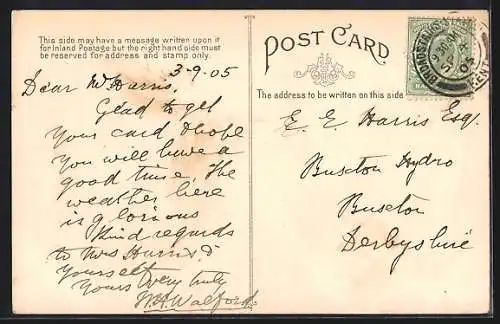 This side may have a message written upon it
for Inland Postage but the right hand side must
be reserved for address and stamp only.
3-9.05
Dear Mr Harris,
Glad to get
your card & hope
you will have a
good time, The
weather here
is glorious
Kind regards
to Mrs Harris &
yourself
Yours very truly
W.H. Walford
POST CARD
The address to be written on this side
E. E. Harris Esq.
Buxton Hydro
Buxton
Derbyshire
BROADSTAIRS
KENT
9.30 AM
SP 4
05